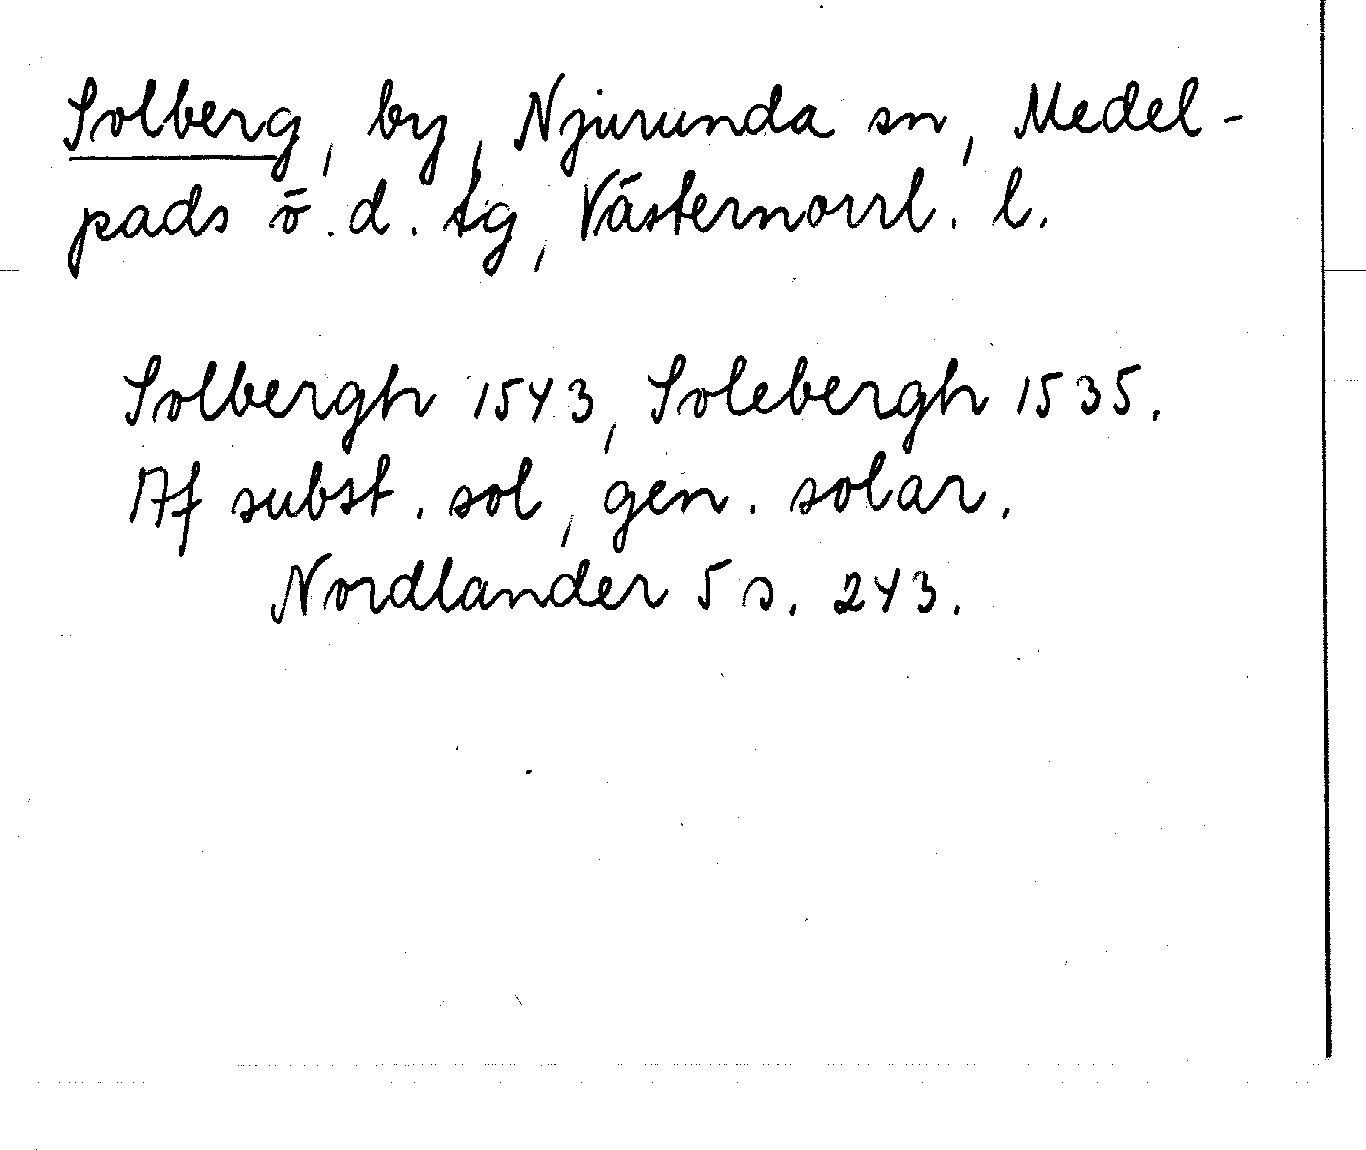 Solberg, by, Njurunda sn, Medel-
pads ö. d. tg, Västernorrl. l.
Solbergh 1543, Solebergh 1535.
Af subst. sol, gen. solar.
Nordlander 5 s. 243.